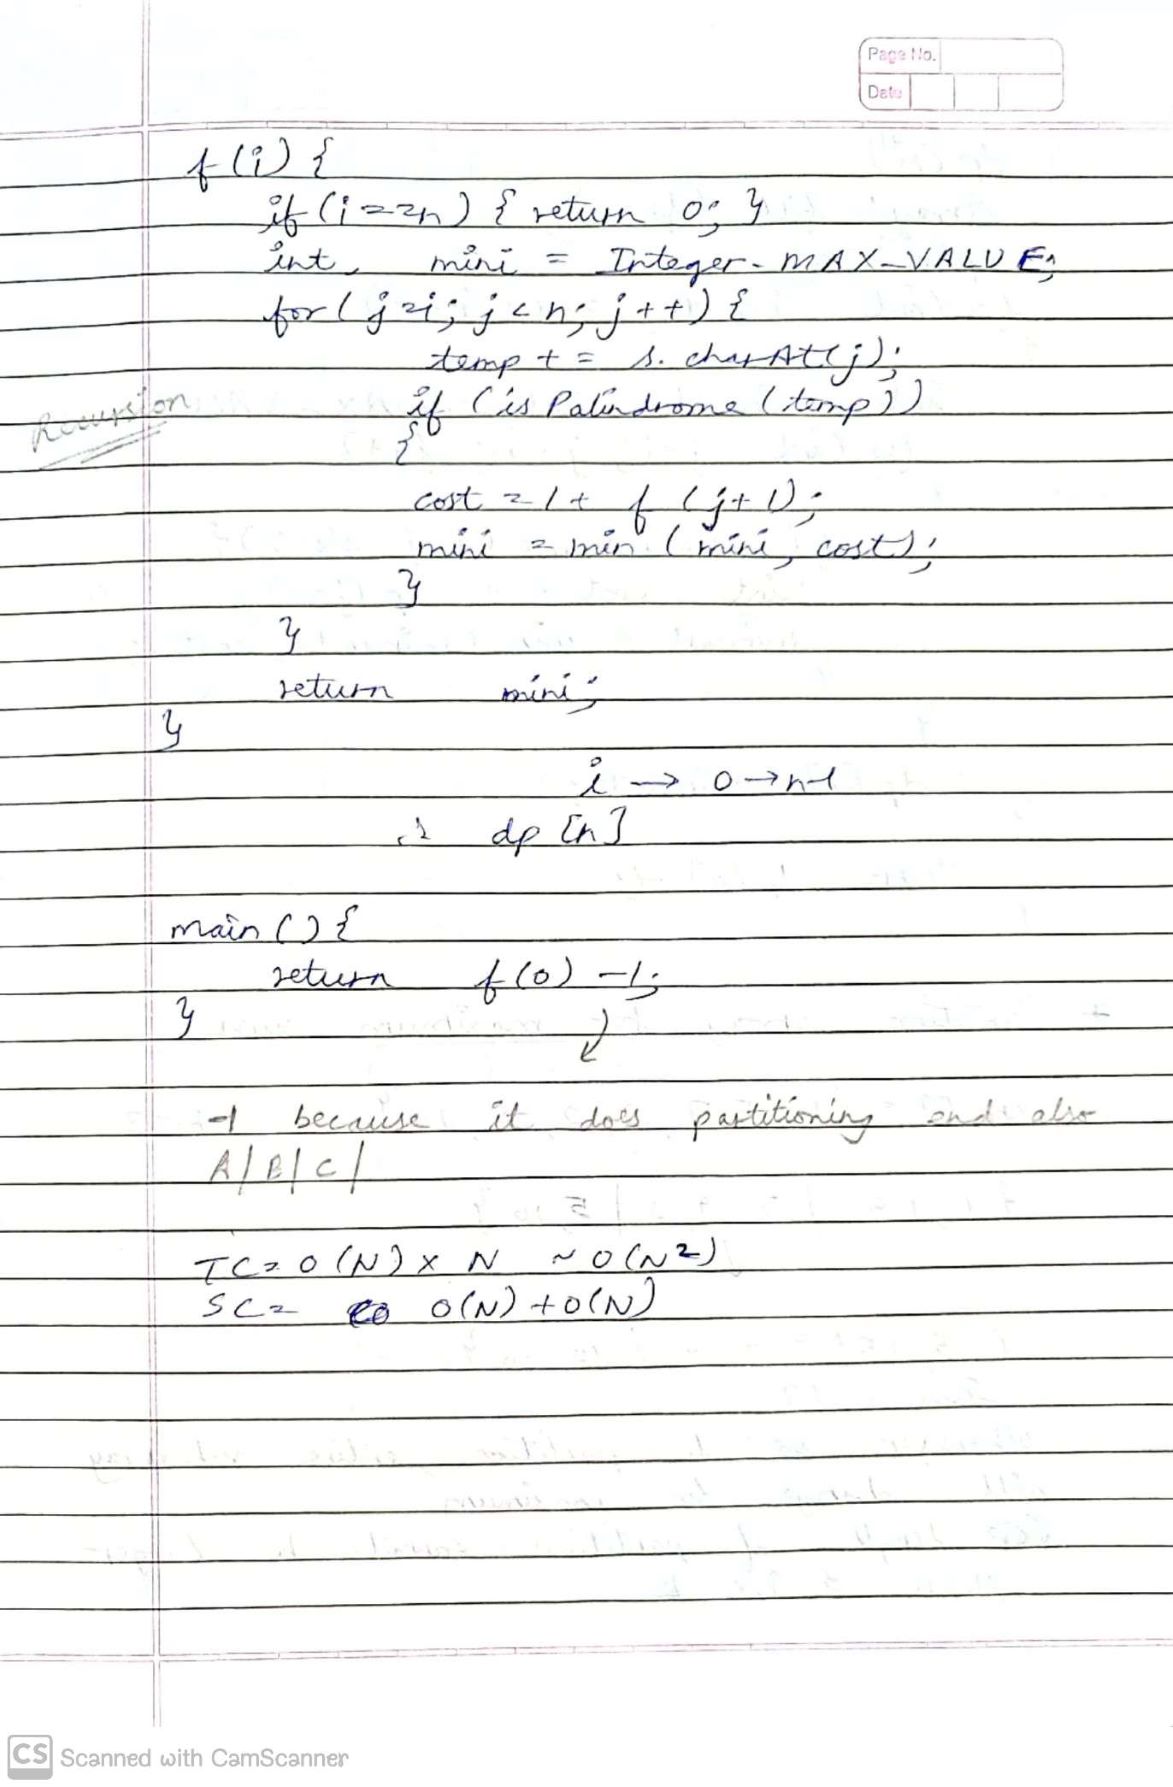 Page No.
Date
f(i) {
if (i==n) { return 0; }
int mini = Integer.MAX_VALUE;
for(j=i; j<n; j++) {
temp += s.charAt(j);
Recursion
if (isPalindrome(temp))
{
cost = 1 + f(j+1);
mini = min(mini, cost);
}
}
return mini;
}
i → 0 → n-1
∴ dp[n]
main() {
return f(0) -1;
}
-1 because it does partitioning end also
A|B|C|
TC= O(N) x N ~ O(N²)
SC= O(N) + O(N)
CS Scanned with CamScanner